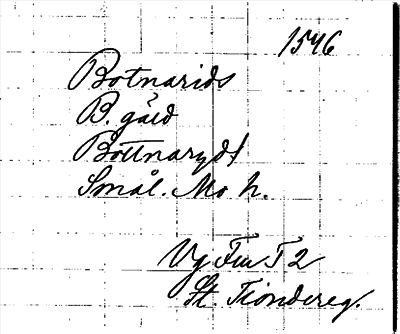 1546
Botnarids
B. gäld
Bottnarydt
Smål. Mo h.
Vg Fm T 2
St. Tiondereg.